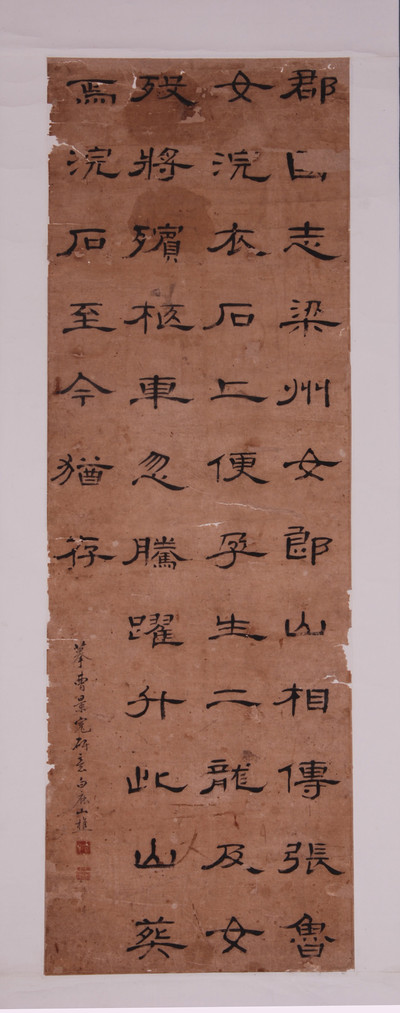 郡國志梁州女郎山相傳張魯
女浣衣石上便孕生二龍及女
歿將殯柩車忽騰躍升此山葬
焉浣石至今猶存
摹曹景完碑意白鹿山樵